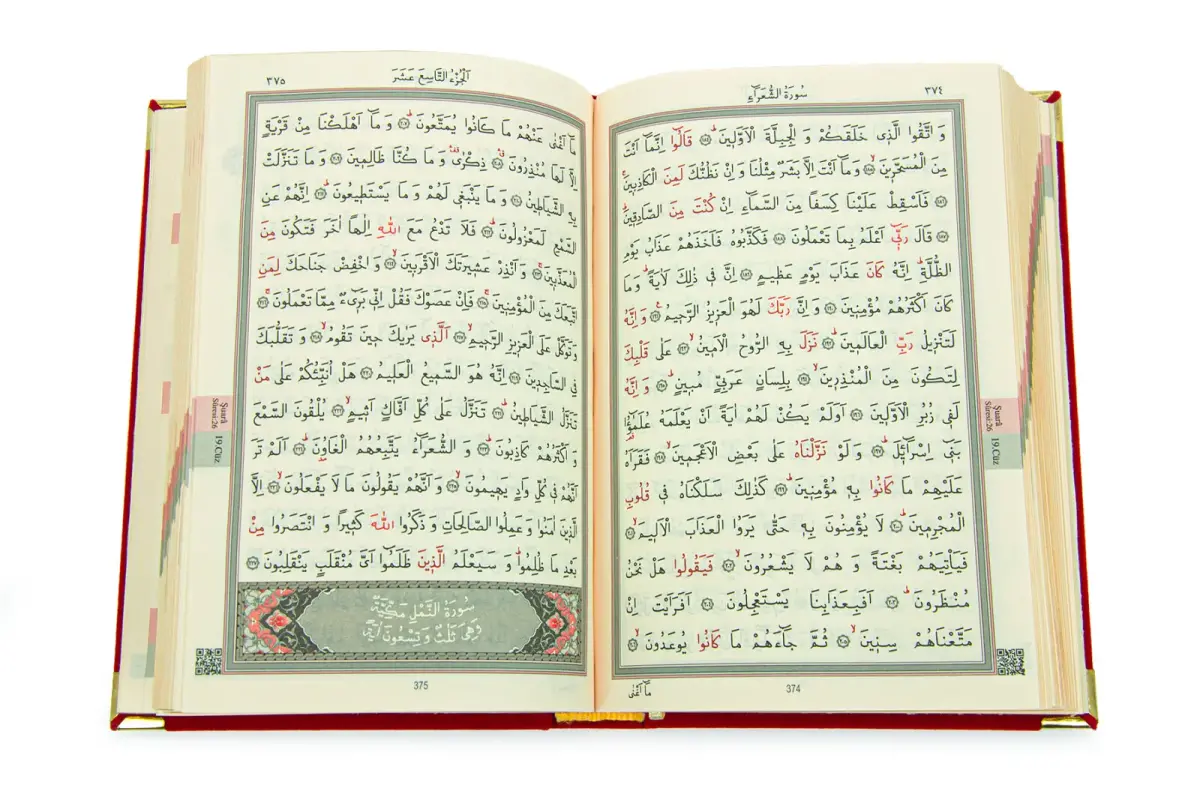 ٣٧٤
سُورَةُ الشُّعَرَاءِ
وَ اتَّقُوا الَّذٖى خَلَقَكُمْ وَ الْجِبِلَّةَ الْاَوَّلٖينَ ۝١٨٤ قَالُٓوا اِنَّمَٓا اَنْتَ
مِنَ الْمُسَحَّرٖينَ ۝١٨٥ وَمَٓا اَنْتَ اِلَّا بَشَرٌ مِثْلُنَا وَ اِنْ نَظُنُّكَ لَمِنَ الْكَاذِبٖينَ
۝١٨٦ فَاَسْقِطْ عَلَيْنَا كِسَفًا مِنَ السَّمَٓاءِ اِنْ كُنْتَ مِنَ الصَّادِقٖينَ
۝١٨٧ قَالَ رَبّٖٓى اَعْلَمُ بِمَا تَعْمَلُونَ ۝١٨٨ فَكَذَّبُوهُ فَاَخَذَهُمْ عَذَابُ يَوْمِ
الظُّلَّةِ اِنَّهُ كَانَ عَذَابَ يَوْمٍ عَظٖيمٍ ۝١٨٩ اِنَّ فٖى ذٰلِكَ لَاٰيَةً وَ مَا
كَانَ اَكْثَرُهُمْ مُؤْمِنٖينَ ۝١٩٠ وَ اِنَّ رَبَّكَ لَهُوَ الْعَزٖيزُ الرَّحٖيمُ ۝١٩١ وَ اِنَّهُ
لَتَنْزٖيلُ رَبِّ الْعَالَمٖينَ ۝١٩٢ نَزَلَ بِهِ الرُّوحُ الْاَمٖينُ ۝١٩٣ عَلٰى قَلْبِكَ
لِتَكُونَ مِنَ الْمُنْذِرٖينَ ۝١٩٤ بِلِسَانٍ عَرَبِىٍّ مُبٖينٍ ۝١٩٥ وَ اِنَّهُ
لَفٖى زُبُرِ الْاَوَّلٖينَ ۝١٩٦ اَوَلَمْ يَكُنْ لَهُمْ اٰيَةً اَنْ يَعْلَمَهُ عُلَمٰٓؤُا
بَنٖٓى اِسْرَٓائٖلَ ۝١٩٧ وَ لَوْ نَزَّلْنَاهُ عَلٰى بَعْضِ الْاَعْجَمٖينَ ۝١٩٨ فَقَرَاَهُ
عَلَيْهِمْ مَا كَانُوا بِهٖ مُؤْمِنٖينَ ۝١٩٩ كَذٰلِكَ سَلَكْنَاهُ فٖى قُلُوبِ
الْمُجْرِمٖينَ ۝٢٠٠ لَا يُؤْمِنُونَ بِهٖ حَتّٰى يَرَوُا الْعَذَابَ الْاَلٖيمَ ۝٢٠١
فَيَاْتِيَهُمْ بَغْتَةً وَ هُمْ لَا يَشْعُرُونَ ۝٢٠٢ فَيَقُولُوا هَلْ نَحْنُ
مُنْظَرُونَ ۝٢٠٣ اَفَبِعَذَابِنَا يَسْتَعْجِلُونَ ۝٢٠٤ اَفَرَاَيْتَ اِنْ
مَتَّعْنَاهُمْ سِنٖينَ ۝٢٠٥ ثُمَّ جَٓاءَهُمْ مَا كَانُوا يُوعَدُونَ ۝٢٠٦
مَٓا اَغْنٰى
374
Şuarâ
Sûresi:26
19.Cüz
اَلْجُزْءُ التَّاسِعَ عَشَرَ
٣٧٥
مَٓا اَغْنٰى عَنْهُمْ مَا كَانُوا يُمَتَّعُونَ ۝٢٠٧ وَ مَٓا اَهْلَكْنَا مِنْ قَرْيَةٍ
اِلَّا لَهَا مُنْذِرُونَ ۝٢٠٨ ذِكْرٰى وَ مَا كُنَّا ظَالِمٖينَ ۝٢٠٩ وَ مَا تَنَزَّلَتْ
بِهِ الشَّيَاطٖينُ ۝٢١٠ وَ مَا يَنْبَغٖى لَهُمْ وَ مَا يَسْتَطٖيعُونَ ۝٢١١ اِنَّهُمْ عَنِ
السَّمْعِ لَمَعْزُولُونَ ۝٢١٢ فَلَا تَدْعُ مَعَ اللّٰهِ اِلٰهًا اٰخَرَ فَتَكُونَ مِنَ
الْمُعَذَّبٖينَ ۝٢١٣ وَ اَنْذِرْ عَشٖيرَتَكَ الْاَقْرَبٖينَ ۝٢١٤ وَ اخْفِضْ جَنَاحَكَ لِمَنِ
اتَّبَعَكَ مِنَ الْمُؤْمِنٖينَ ۝٢١٥ فَاِنْ عَصَوْكَ فَقُلْ اِنّٖى بَرٖٓىءٌ مِمَّا تَعْمَلُونَ ۝٢١٦
وَتَوَكَّلْ عَلَى الْعَزٖيزِ الرَّحٖيمِ ۝٢١٧ اَلَّذٖى يَرٰيكَ حٖينَ تَقُومُ ۝٢١٨ وَ تَقَلُّبَكَ
فِى السَّاجِدٖينَ ۝٢١٩ اِنَّهُ هُوَ السَّمٖيعُ الْعَلٖيمُ ۝٢٢٠ هَلْ اُنَبِّئُكُمْ عَلٰى مَنْ
تَنَزَّلُ الشَّيَاطٖينُ ۝٢٢١ تَنَزَّلُ عَلٰى كُلِّ اَفَّاكٍ اَثٖيمٍ ۝٢٢٢ يُلْقُونَ السَّمْعَ
وَ اَكْثَرُهُمْ كَاذِبُونَ ۝٢٢٣ وَ الشُّعَرَٓاءُ يَتَّبِعُهُمُ الْغَاوُنَ ۝٢٢٤ اَلَمْ تَرَ
اَنَّهُمْ فٖى كُلِّ وَادٍ يَهٖيمُونَ ۝٢٢٥ وَ اَنَّهُمْ يَقُولُونَ مَا لَا يَفْعَلُونَ ۝٢٢٦ اِلَّا
الَّذٖينَ اٰمَنُوا وَ عَمِلُوا الصَّالِحَاتِ وَ ذَكَرُوا اللّٰهَ كَثٖيرًا وَ انْتَصَرُوا مِنْ
بَعْدِ مَا ظُلِمُوا وَ سَيَعْلَمُ الَّذٖينَ ظَلَمُٓوا اَىَّ مُنْقَلَبٍ يَنْقَلِبُونَ ۝٢٢٧
سُورَةُ النَّمْلِ مَكِّيَّةٌ
وَهِىَ ثَلٰثٌ وَ تِسْعُونَ اٰيَةً
375
Şuarâ
Sûresi:26
19.Cüz